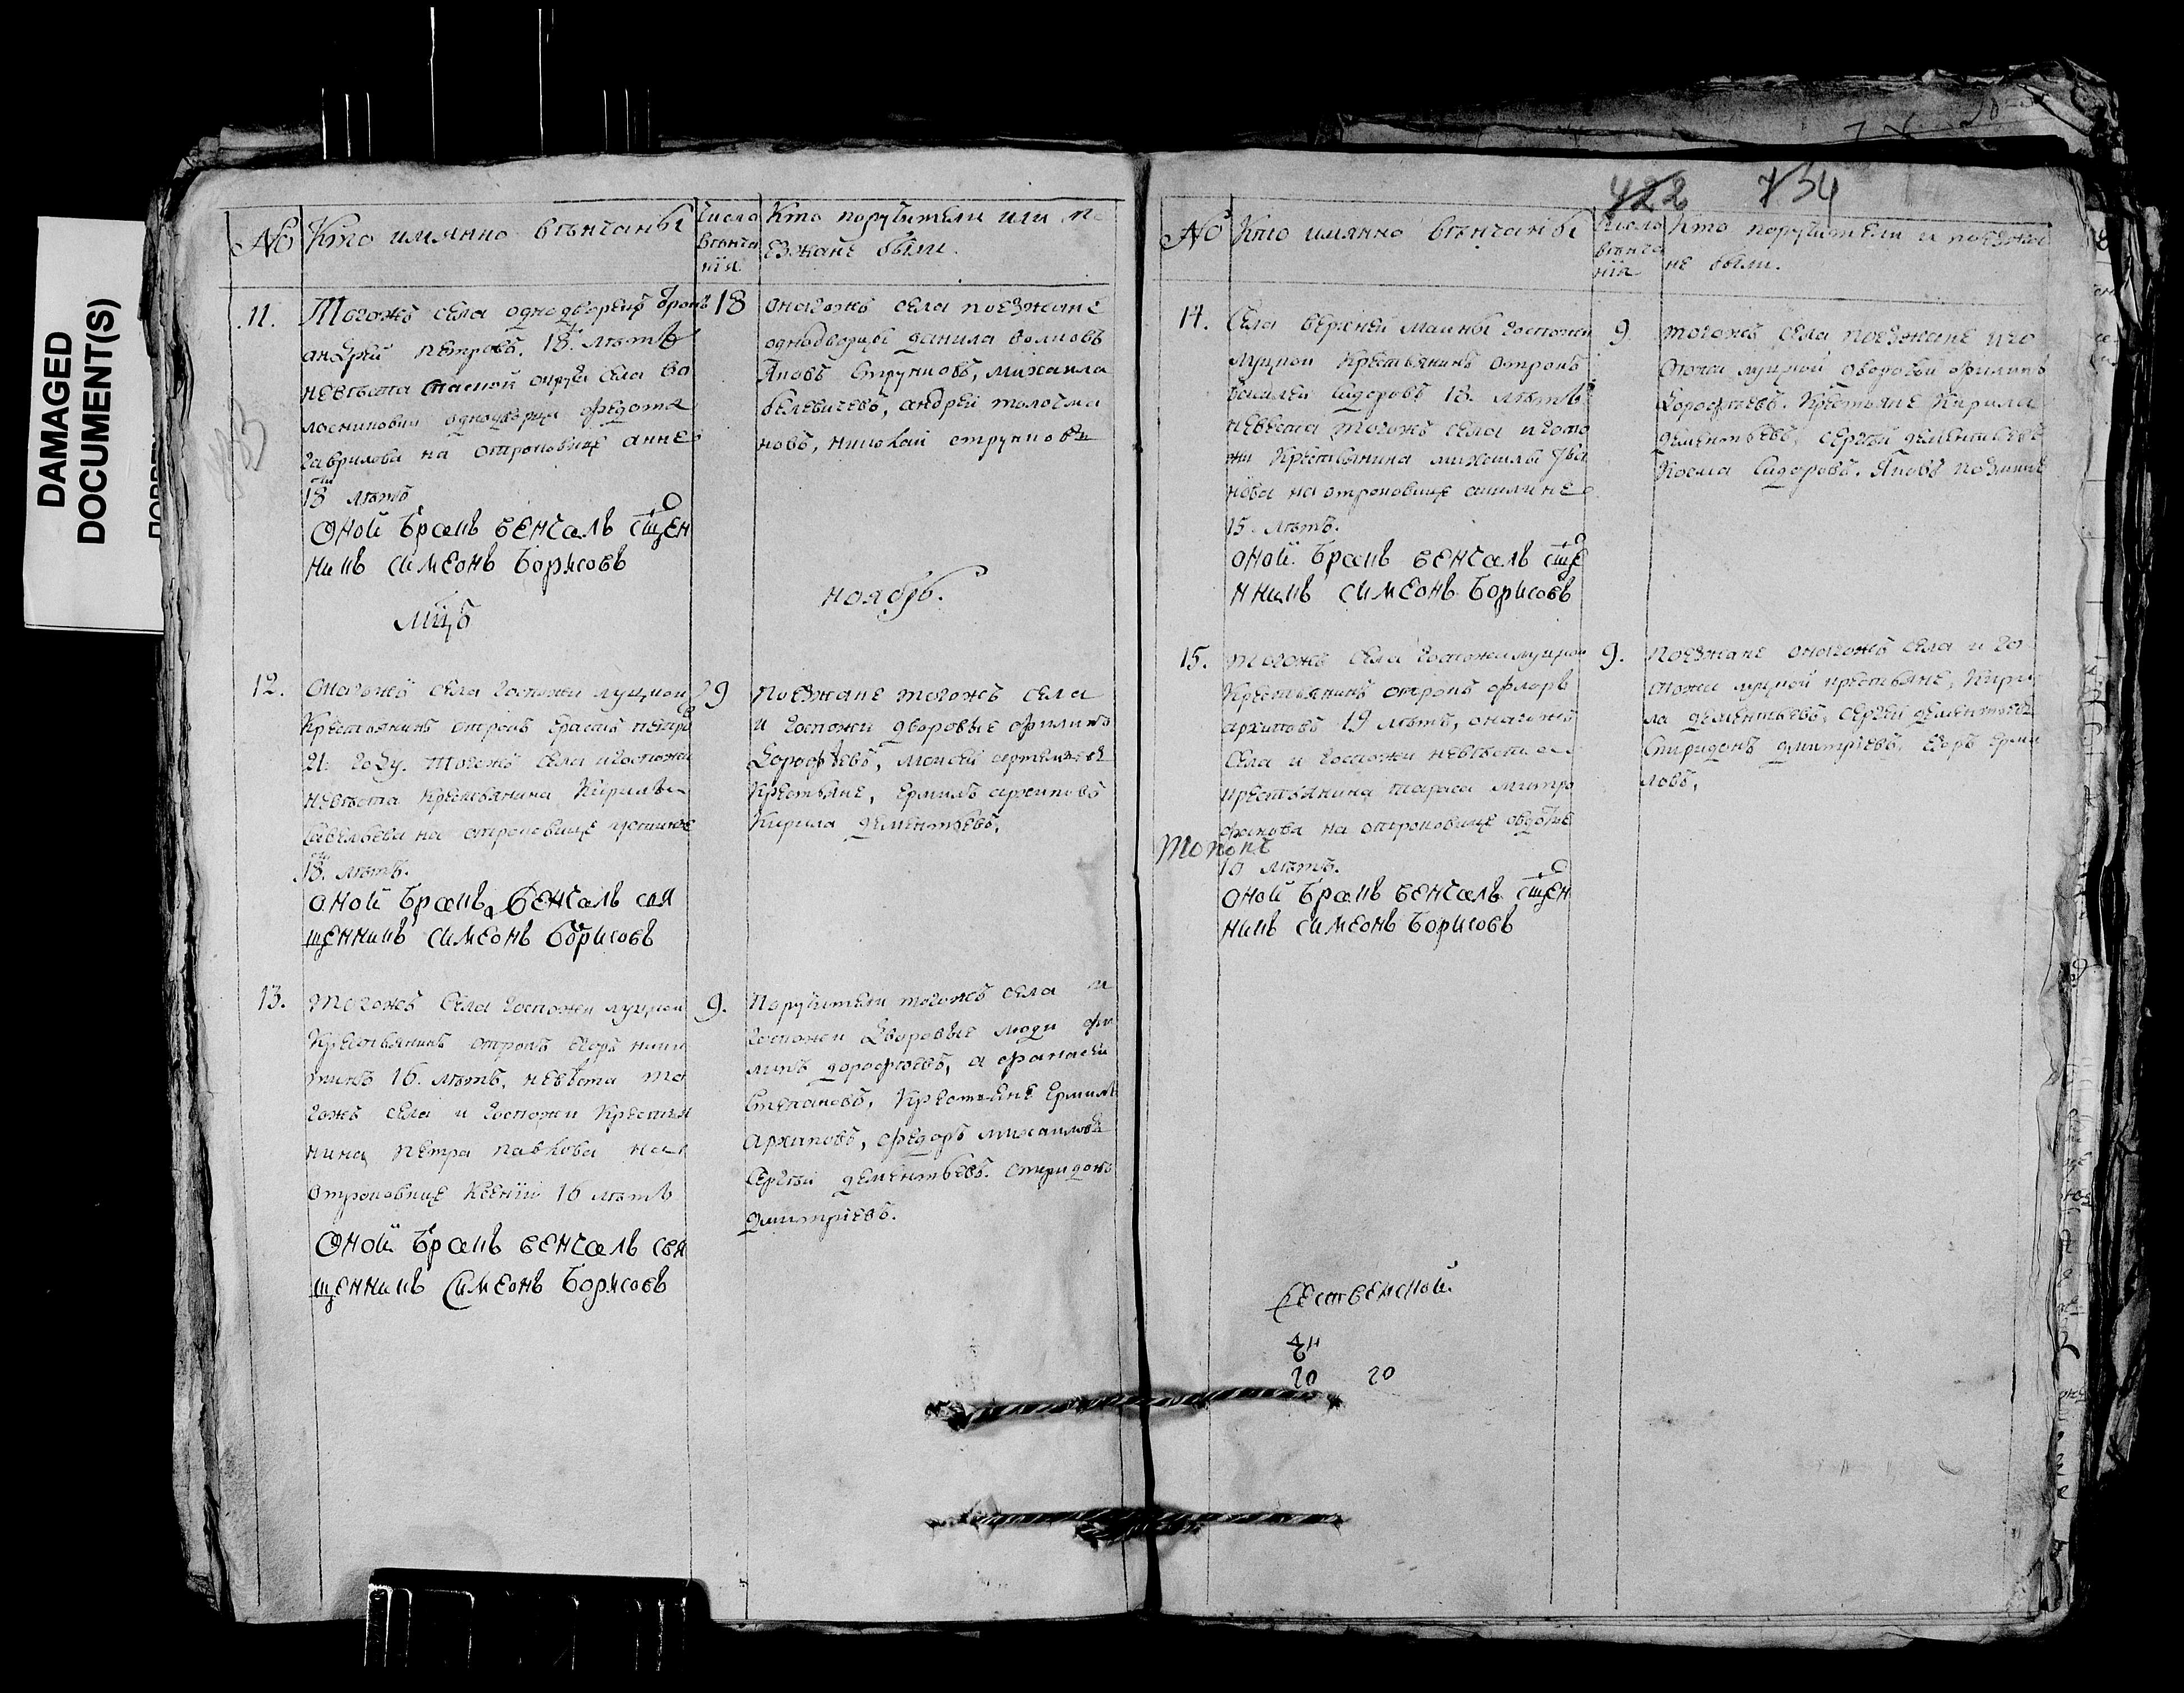 DAMAGED
DOCUMENT(S)
422 734
№ Кто имянно вѣнчаны
Число
вѣнча
нiя
Кто поручители или по
езжанe были.
11. Тогожъ села однодворецъ отрокъ
андрей петровъ. 18. лѣтъ
невѣста спаской округи села во
однодворца федота
гаврилова на отроковице анне
18 лѣтъ
оной бракъ венчалъ сщен
никъ симеонъ борисовъ
18
онагожъ села поезжанe
однодворцы данила волковъ
Яковъ Струнковъ, михаила
андрей
новъ, николай струнковъ
мцъ
ноябрь.
12. Онагожъ села госпожи луцкой
Крестьянинъ отрокъ ерастъ петро
21. году. тогожъ села игоспожи
невѣста крестьянина Кирилы
Савельева на отроковице устинье
18. лѣтъ.
оной бракъ венчалъ свя
щенникъ симеонъ борисовъ
9
Поезжанe тогожъ села
и госпожи дворовые филипъ
дорофѣевъ, моисей артемьевъ
крестьянe, ермилъ архиповъ
Кирила дементьевъ.
13. тогожъ села госпожи луцкой
Крестьянинъ отрокъ егоръ ники
тинъ 16. лѣтъ, невѣста то
гожъ села и госпожи крестья
нина петра павлова на
отроковице Ксении 16 лѣтъ
Оной бракъ венчалъ свя
щенникъ Симеонъ борисовъ
9.
Поручители тогожъ села и
госпожи дворовые люди фи
липъ дорофѣевъ, афанасей
Степановъ, крестьянe Ермилъ
Архиповъ, федоръ михаиловъ
Сергѣй дементьевъ. Спиридонъ
дмитрiевъ.
№ Кто имянно вѣнчаны
Число
вѣнча
нiя
Кто поручители и поезжа
не были.
14. Села верхней маины госпожи
луцкой крестьянинъ отрокъ
василей Сидоровъ 18. лѣтъ
невѣста тогожъ села игоспо
жи крестьянина михаилы ива
нова на отроковице акилине
15. лѣтъ.
оной бракъ венчалъ сще
нникъ симеонъ борисовъ
9
тогожъ села поезжанe иго
спожи луцкой дворовыи филипъ
дорофѣевъ. Крестьянe Кирила
дементьевъ, сергѣй дементьевъ
Косма Сидоровъ. Яковъ
15. тогожъ села госпожи луцкой
Крестьянинъ отрокъ флоръ
архиповъ 19 лѣтъ, онагожъ
села и госпожи невѣста
крестьянина тараса митро
фанова на отроковице авдотье
16 лѣтъ.
оной бракъ венчалъ сщен
никъ симеонъ борисовъ
9.
Поезжанe онагожъ села и го
спожи луцкой крестьянe, Кири
ла дементьевъ, сергѣй дементьевъ
Спиридонъ дмитрiевъ, егоръ ерми
ловъ,
20 20